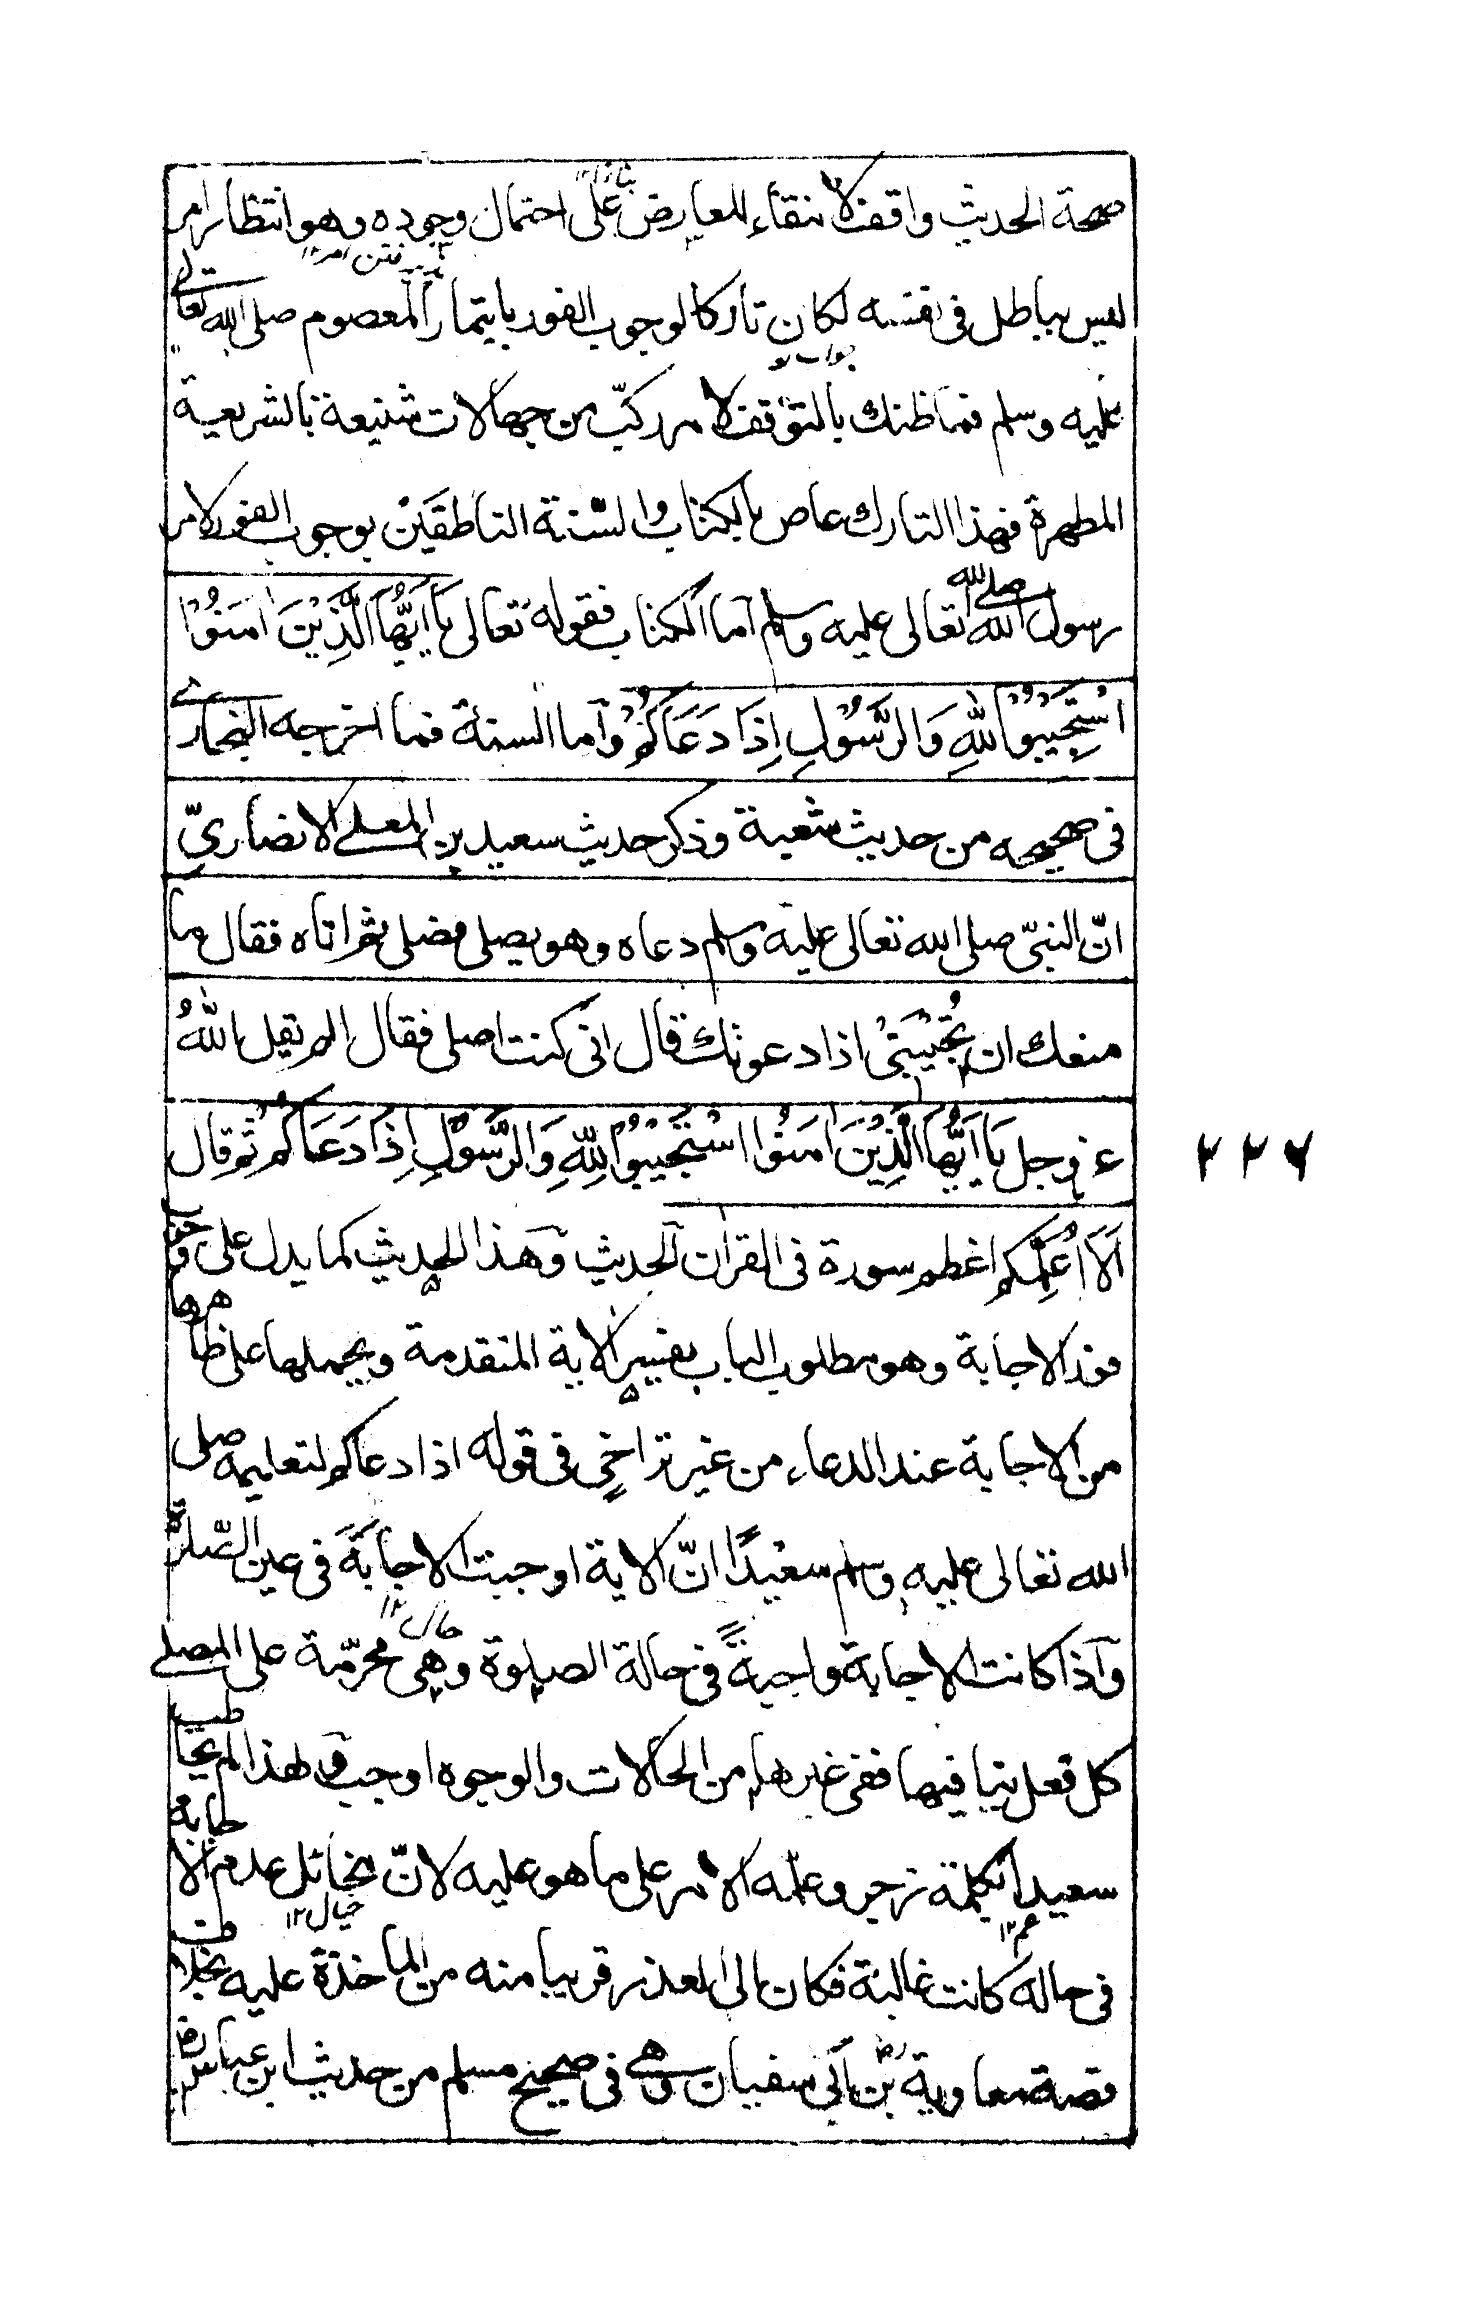 صحة الحديث واقفا لانتقاء للعارض على احتمال وجوده وهو انتظار امر
ليس بباطل في نفسه لكان تاركا لوجوب الفور بايتمار المعصوم صلى الله تعالى
جواب لو
عليه وسلم فما ظنك بالتوقف لامر ركّب من جهالات شنيعة بالشريعة
المطهرة فهذا التارك عاص بالكتاب والسّنة الناطقَيْن بوجوب الفور لامر
رسول الله صلى الله تعالى عليه وسلم آما الكتاب فقوله تعالى يَا اَيُّهَا الَّذِيْنَ اٰمَنُوْا
اسْتَجِيْبُوْا لِلّٰهِ وَالرَّسُوْلِ اِذَا دَعَاكُمْ وآما السنة فما اخرجه البخاري
في صحيحه من حديث شعبة وذكر حديث سعيد بن المعلى الانصاريّ
انّ النبىّ صلى الله تعالى عليه وسلم دعاه وهو يصلى فصلى ثم اتاه فقال ما
منعك ان تُجِيْبَنِيْ اذا دعوتك قال انى كنت اصلى فقال الم يقل اللّٰهُ
عز وجل يَا اَيُّهَا الَّذِيْنَ اٰمَنُوا اسْتَجِيْبُوْا لِلّٰهِ وَالرَّسُوْلِ اِذَا دَعَاكُمْ ثم قال
٢٢٦
اَلَا اُعَلِّمُكم اعظم سورة في القران الحديث وهذا الحديث كما يدل على وجوب
فور الاجابة وهو مطلوب الباب يفسير الاية المتقدمة ويحملها على ظاهرها
من الاجابة عند الدعاء من غير تراخي في قوله اذا دعاكم لتعليمه صلى
الله تعالى عليه وسلم سعيدًا انّ الاية اوجبت الاجابةَ في عين الصّلوٰة
وآذا كانت الاجابة واجبةً في حالة الصلوة وهي محرّمة على المصلي
حال ١٢
كل فعل ينافيها ففي غيرها من الحالات والوجوه اوجب ولهذا لم يخاطب
سعيدا بكلمة زجر وعلّمه الامر على ما هو عليه لانّ مخائل عدم الاجابة
خيال ١٢
في حاله كانت غالبة فكان الى العذر قريبا منه من المأخذة عليه بخلاف
قصة معاوية بن ابي سفيان وهي في صحيح مسلم من حديث ابن عباس